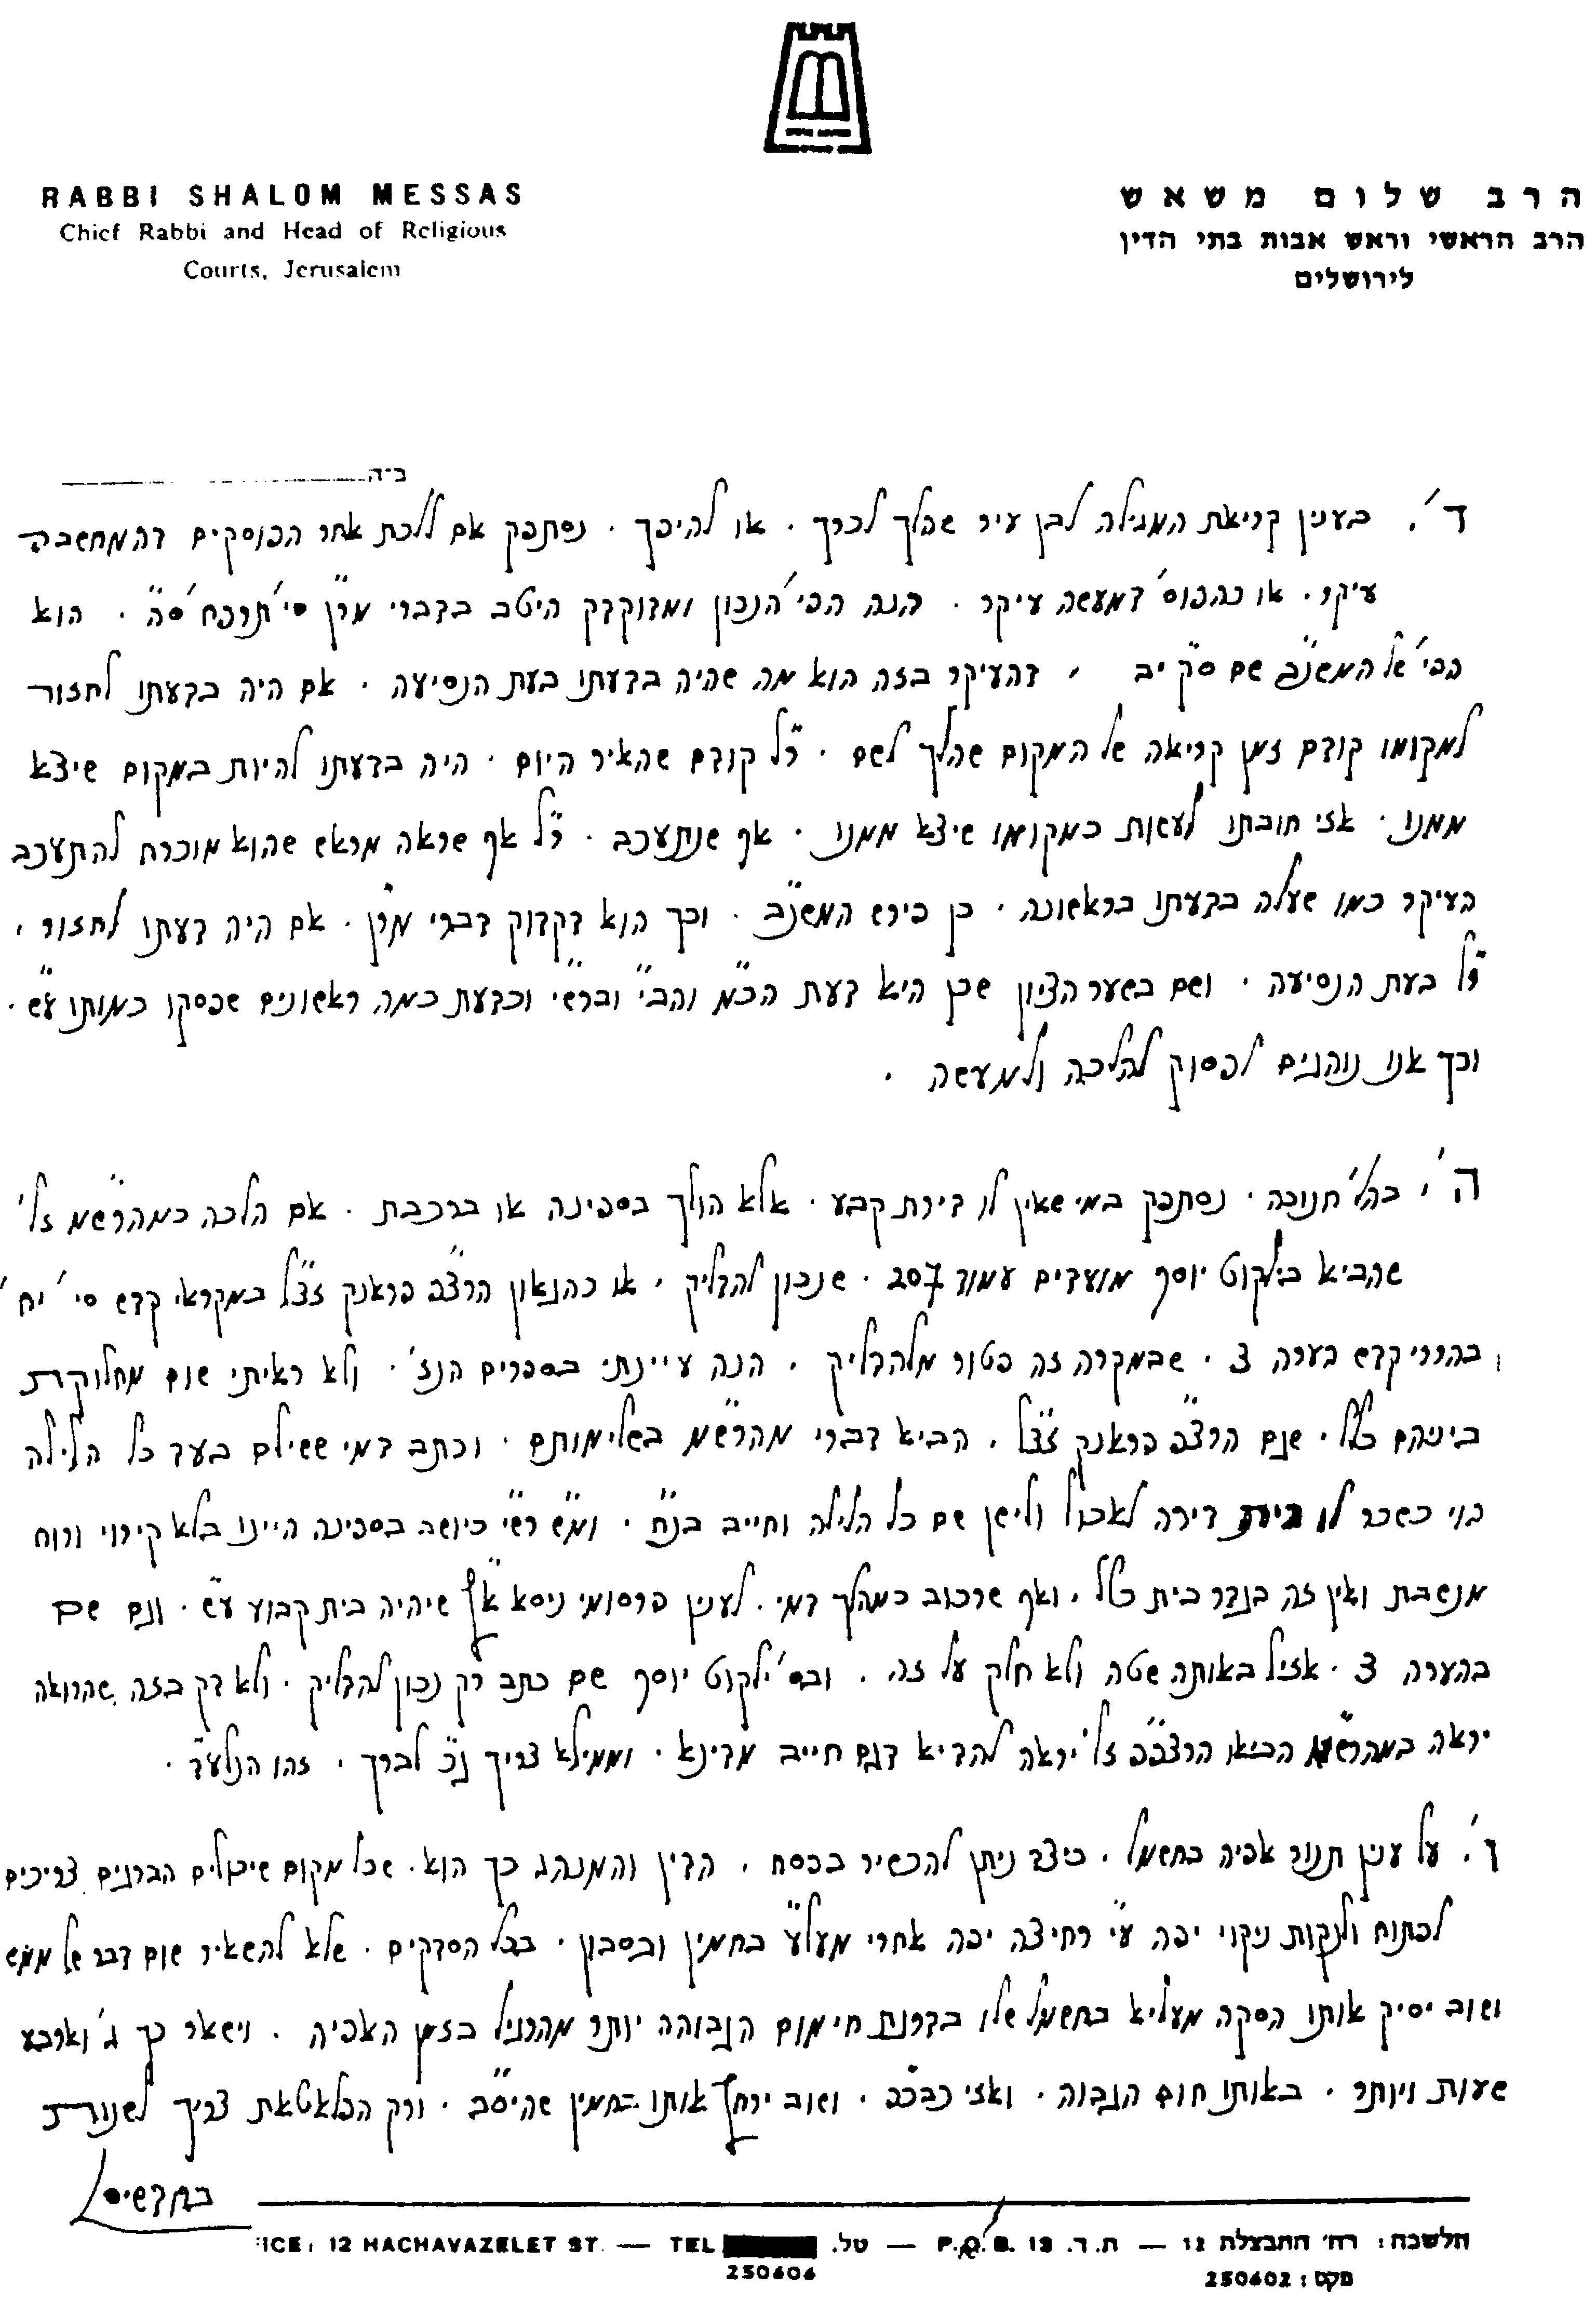 RABBI SHALOM MESSAS
Chief Rabbi and Head of Religious
Courts, Jerusalem
הרב שלום משאש
הרב הראשי וראש אבות בתי הדין
לירושלים
ב״ה
ד'. בענין קריאת המגילה לבן עיר שהלך לכרך. או להיפך. נסתפק אם ללכת אחר הפוסקים דהמחשבה
עיקר. או כהפוס' דמעשה עיקר. הנה הפי' הנכון ומדוקדק היטב בדברי מר״ן סי' תרפח' ס״ה. הוא
הפי' של המשנ״ב שם ס״ק יב, דהעיקר בזה הוא מה שהיה בדעתו בעת הנסיעה. אם היה בדעתו לחזור
למקומו קודם זמן קריאה של המקום שהלך לשם. ר״ל קודם שהאיר היום. היה בדעתו להיות במקום שיצא
ממנו. אזי חובתו לעשות כמקומו שיצא ממנו. אף שנתעכב. ר״ל אף שראה מראש שהוא מוכרח להתעכב
העיקר כמו שעלה בדעתו בראשונה. כן פירש המשנ״ב. וכך הוא דקדוק דברי מר״ן. אם היה דעתו לחזור,
ר״ל בעת הנסיעה. ושם בשער הציון שכן היא דעת הכ״מ והב״י וברש״י וכדעת כמה ראשונים שפסקו כמותו ע״ש.
וכך אנו נוהגים לפסוק להלכה ולמעשה.
ה', בהל' חנוכה. נסתפק במי שאין לו דירת קבע. אלא הולך בספינה או ברכבת. אם הלכה כמהרש״ם ז״ל
שהביא בילקוט יוסף מועדים עמוד 207. שנכון להדליק, או כהגאון הרצ״פ פראנק זצ״ל במקראי קדש סי' יח'
בהררי קדש הערה 3. שבמקרה זה פטור מלהדליק. הנה עיינתי בספרים הנז'. ולא ראיתי שום מחלוקת
ביניהם כלל. שגם הרצ״פ פראנק זצ״ל, הביא דברי מהרש״ם בשלימותם. וכתב דמי ששילם בעד כל הלילה
הוי כשכר לו בית דירה לאכול ולישן שם כל הלילה וחייב בנ״ח. ומ״ש רש״י כיושב בספינה היינו בלא קירוי ורוח
מנשבת ואין זה בגדר בית כלל, ואף שרכוב כמהלך דמי. לענין פרסומי ניסא א״צ שיהיה בית קבוע ע״ש. וגם שם
בהערה 3. אזיל באותה שטה ולא חלק על זה. ובס' ילקוט יוסף שם כתב רק נכון להדליק. ולא דק בזה שהרואה
יראה במהרש״ם הביאו הרצפ״פ ז״ל יראה להדיא דגם חייב מדינא. וממילא צריך ג״כ לברך. זהו הנלע״ד.
ו'. על ענין תנור אפיה בחשמל. כיצד ניתן להכשיר בפסח. הדין והמנהג כך הוא. שכל מקום שיכולים הברגים צריכים
לפתוח ולנקות ניקוי יפה ע״י רחיצה יפה אחרי מעל״ע בחמין ובסבון. בכל הסדקים. שלא להשאיר שום דבר של ממש
ושוב יסיק אותו הסקה מעליא בחשמל שלו בדרגת חימום הגבוהה יותר מהרגיל בזמן האפיה. וישאר כך ג' וארבע
שעות ויותר. באותו חום הגבוה. ואזי כבכ״פ. ושוב ירחץ אותו בחמין שהיס״ב. ורק הפלאטאת צריך לשנות
בחדשים
הלשכה: רח' החבצלת 12 — ת.ד. 13 P.O.B. — טל. TEL — ICE: 12 HACHAVAZELET ST.
250606
פקס: 250602